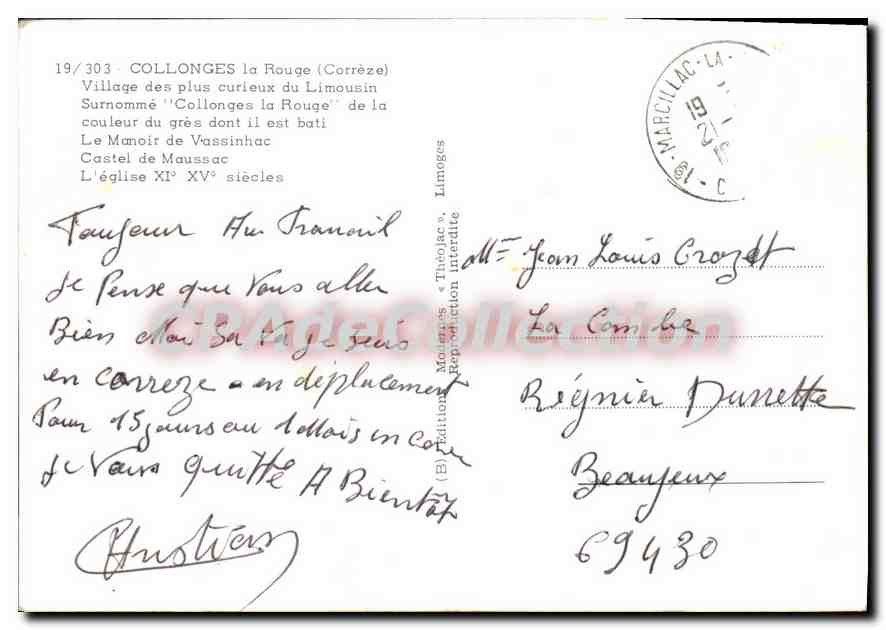 19/303 - COLLONGES la Rouge (Corrèze)
Village des plus curieux du Limousin
Surnommé "Collonges la Rouge" de la
couleur du grès dont il est bati
Le Manoir de Vassinhac
Castel de Maussac
L'église XI° XV° siècles
Toujour Au Travail
Je Pense que Vous aller
Bien Moi Sa Va je suis
en correze en déplacement
Pour 15 jours ou 1 Mois en core
Je Vous quitte A Bientôt
Christian
(B) Editions Modernes « Théojac », Limoges
Reproduction interdite
19 - MARCILLAC-LA-
19
21
Mr Jean Louis Crozet
La Combe
Régnier Durrette
Beaujeux
69430
CPAdeCollection